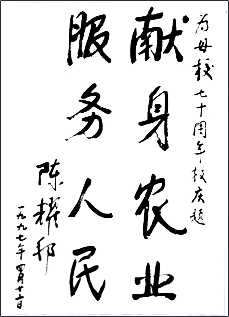 为母校七十周年校庆题
献身农业
服务人民
陈耀邦
一九九七年四月十二日